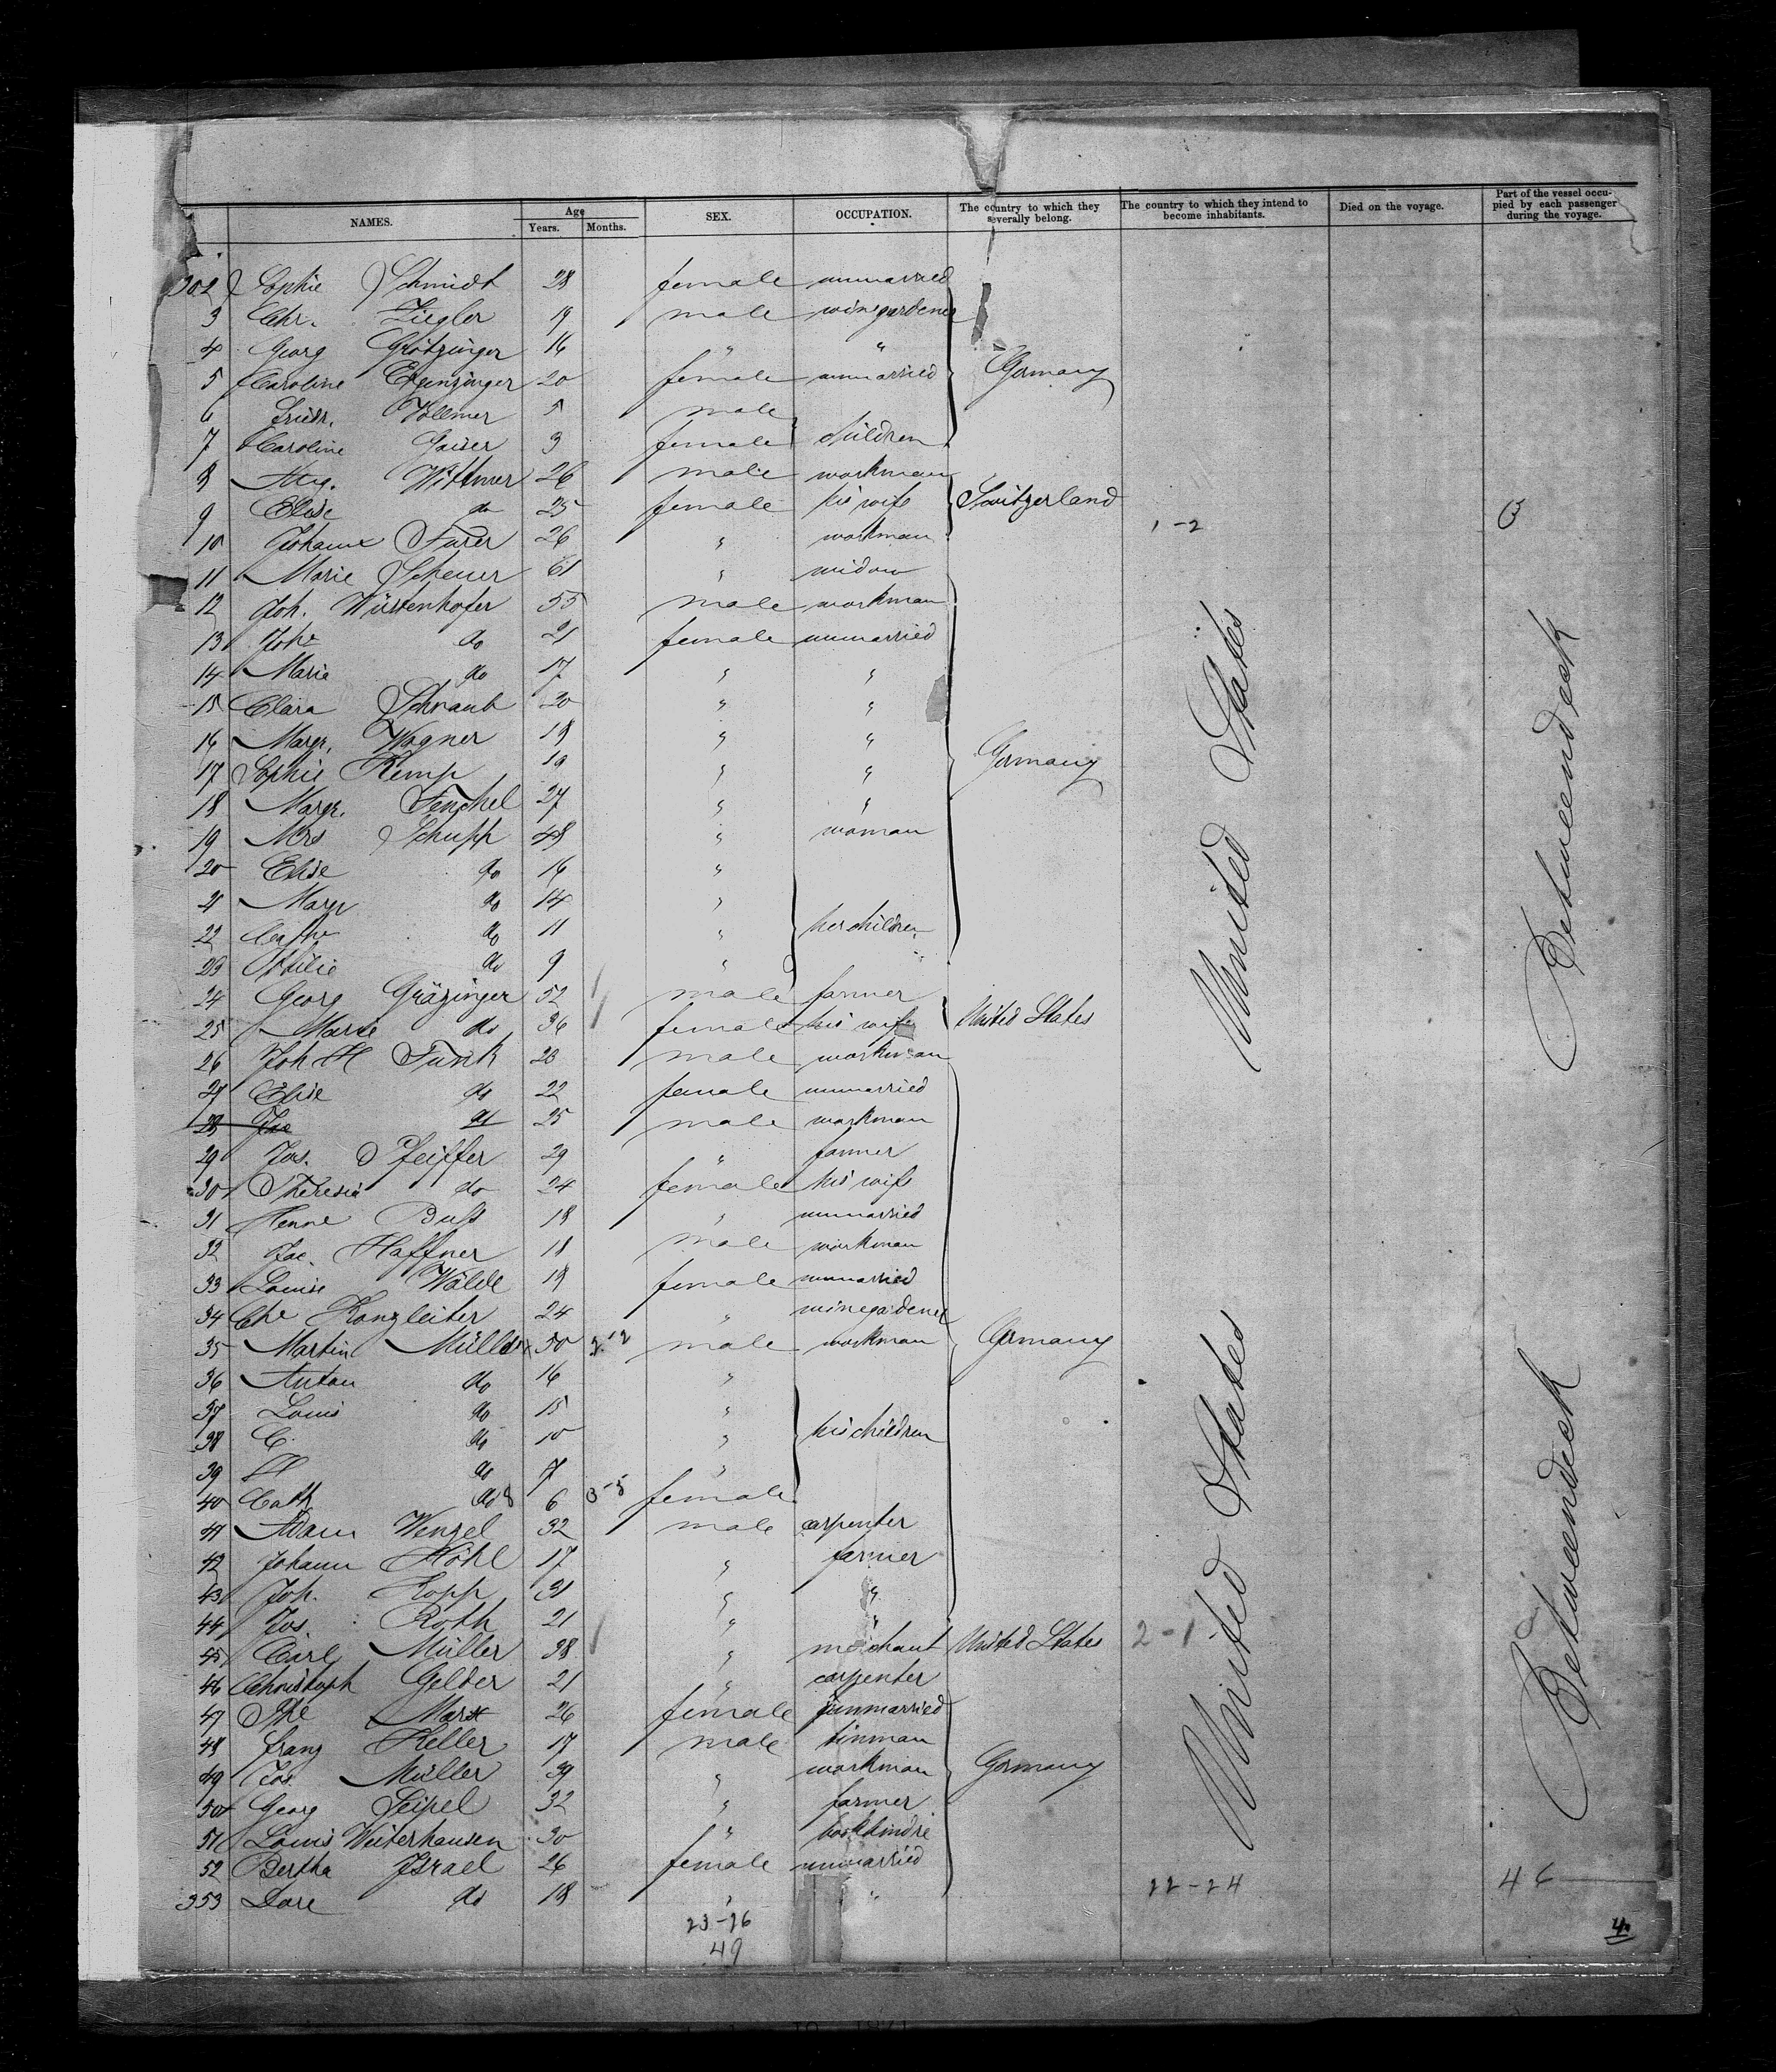 NAMES. Age Years. Months. SEX. OCCUPATION. The country to which they severally belong. The country to which they intend to become inhabitants. Died on the voyage. Part of the vessel occupied by each passenger during the voyage.
302 Sophie Schmidt 28 female unmarried
3 Chr. Ziegler 19 male winegardener
4 Georg Grötzinger 16 " "
5 Caroline Ergenzinger 20 female unmarried Germany
6 Friedr. Vollmer 5 male
7 Caroline Gaiser 3 female children
8 Aug. Wittmer 26 male workman
9 Elise do 25 female his wife Switzerland 1-2
10 Johann Furer 26 " workman
11 Marie Scheuer 61 " widow
12 Joh. Wüstenhofer 55 male workman
13 do 21 female unmarried
14 Marie do 17 " "
15 Clara Schraub 20 " "
16 Margr. Wagner 19 " "
17 Sophie Kemp 19 " " Germany
18 Margr. Fenchel 27 " "
19 Mrs Schupp 48 " woman
20 Elise do 16 "
21 Margr do 14 "
22 Cathr do 11 " her children
23 Ottilie do 9 "
24 Georg Gräzinger 52 male farmer
25 Marie do 36 female his wife United States
26 Joh H Funk 23 male workman
27 Elise do 22 female unmarried
28 do 25 male workman
29 Jos. Pfeiffer 29 " farmer
30 Theresia do 24 female his wife
31 Henne Buss 18 " unmarried
32 Jac. Haffner 18 male workman
33 Louise Wälde 19 female unmarried
34 Chr Kanzleiter 24 " winegardener
35 Martin Müller 50 male workman Germany
36 Anton do 16 "
37 Louis do 15 "
38 C. do 10 " his children
39 do 7 "
40 Cath do 6 female
41 Adam Wenzel 32 male carpenter
42 Johann Höhl 17 " farmer
43 Joh. Kopp 31 " "
44 Jos. Roth 21 " "
45 Carl Müller 38 " merchant United States 2-1
46 Christoph Gelder 21 " carpenter
47 Marx 26 female unmarried
48 Franz Heller 17 male tinman
49 Jos. Müller 39 " workman Germany
50 Georg Seipel 32 " farmer
51 Louis Weiterhausen 30 " bookbindre
52 Bertha Israel 26 female unmarried
353 Dore do 18 " " 22-24 46
23-26
49
4
United States
Betweendeck
United States
Betweendeck